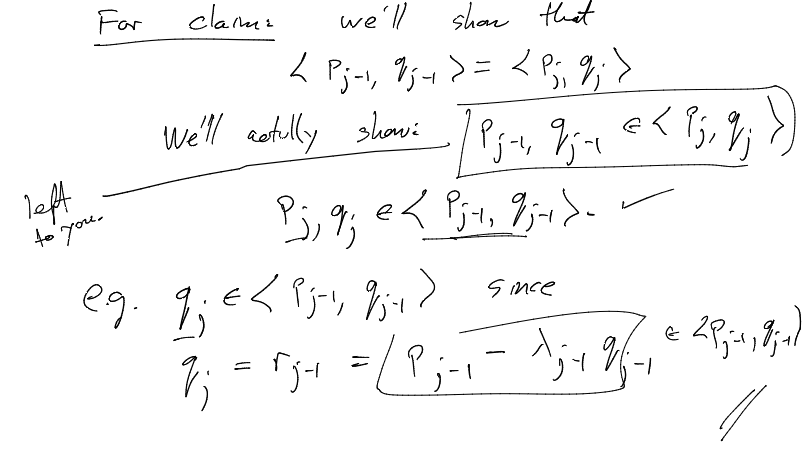 For claim: we'll show that
< P_{j-1}, q_{j-1} > = < P_j, q_j >
We'll actully show: P_{j-1}, q_{j-1} ∈ < P_j, q_j >
left to you.
P_j, q_j ∈ < P_{j-1}, q_{j-1} >. ✓
e.g. q_j ∈ < P_{j-1}, q_{j-1} > since
q_j = r_{j-1} = P_{j-1} - λ_{j-1} q_{j-1} ∈ < P_{j-1}, q_{j-1} >
//